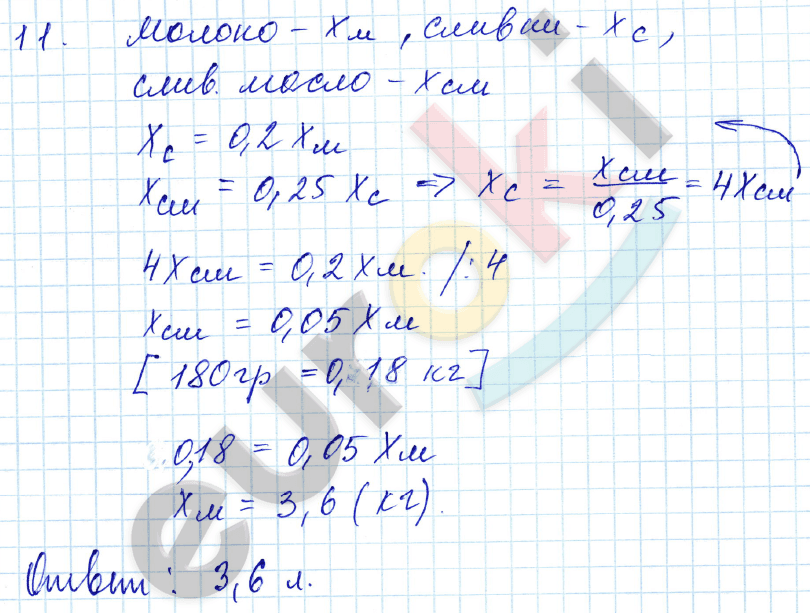 11. Молоко – Xм, сливки – Xс,
слив. масло – Xсм
Xс = 0,2 Xм
Xсм = 0,25 Xс => Xс = Xсм/0,25 = 4Xсм
4Xсм = 0,2 Xм. /:4
Xсм = 0,05 Xм
[180гр = 0,18 кг]
0,18 = 0,05 Xм
Xм = 3,6 (кг).
Ответ: 3,6 л.
euroki